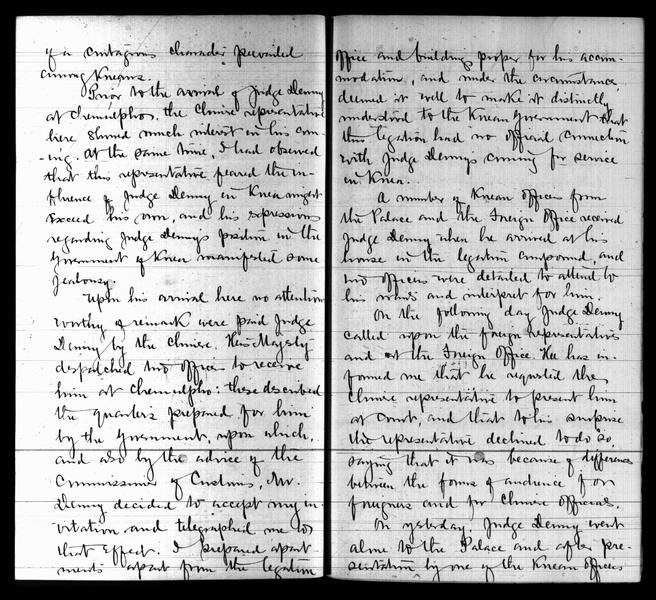 of a contagious character prevailed
among Koreans.
Prior to the arrival of Judge Denny
at Chemulpho, the Chinese representative
here showed much interest in his com-
-ing. At the same time, I had observed
that this representative feared the in-
fluence of Judge Denny in Korea might
exceed his own, and his expressions
regarding Judge Denny's position in the
Government of Korea manifested some
jealousy.
Upon his arrival here no attention
worthy of remark were paid Judge
Denny by the Chinese. His Majesty
despatched two officers to receive
him at Chemulpho: these described
the quarters prepared for him
by the Government, upon which,
and also by the advice of the
Commissioner of Customs, Mr.
Denny decided to accept my in-
vitation and telegraphed me to
that effect. I prepared apart
ments apart from the legation
office and buildings proper for his accom-
modation, and under the circumstance,
deemed it well to make it distinctly
understood to the Korean Government that
this legation had no official connection
with Judge Denny's coming for service
in Korea.
A number of Korean officers from
the Palace and the Foreign Office received
Judge Denny when he arrived at his
house in the legation compound, and
two officers were detailed to attend to
his wants and interpret for him.
On the following day Judge Denny
called upon the foreign representatives
and at the Foreign Office. He has in-
formed me that he requested the
Chinese representative to present him
at Court, and that to his surprise
the representative declined to do so,
saying that it was because of differences
between the forms of audience for
foreigners and for Chinese officials.
On yesterday, Judge Denny went
alone to the Palace and after pre-
sentation by one of the Korean officers